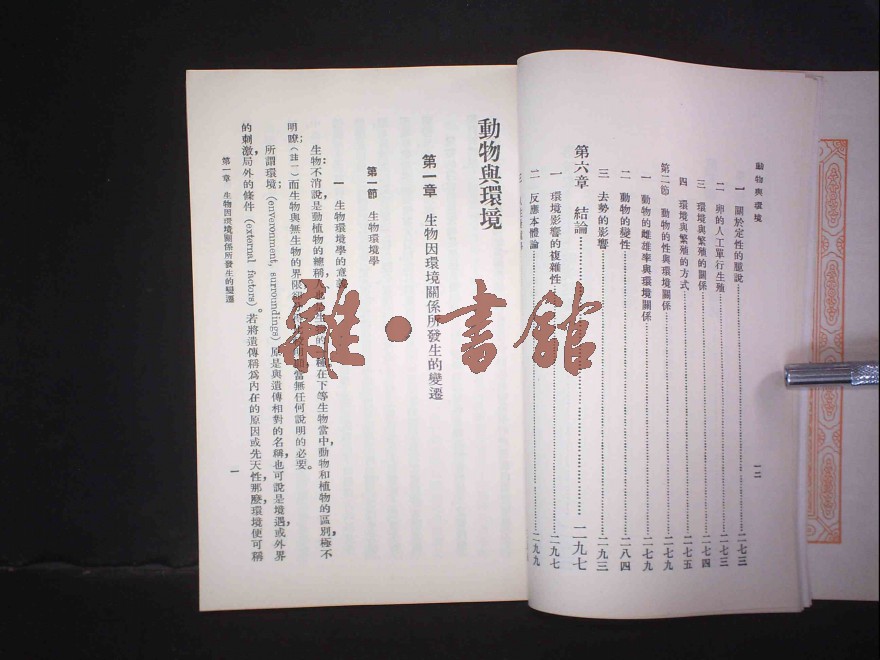 動物與環境
一 關於定性的臆說……二七三
二 卵的人工單行生殖……二七三
三 環境與繁殖的關係……二七四
四 環境與繁殖的方式……二七五
第二節 動物的性與環境關係
一 動物的雌雄率與環境關係……二七九
二 動物的變性……二八四
三 去勢的影響……二九三
第六章 結論……二九七
一 環境影響的複雜性……二九七
二 反應本體論……二九九
一二
動物與環境
第一章 生物因環境關係所發生的變遷
第一節 生物環境學
一 生物環境學的意
生物：不消說是動植物的總稱，在下等生物當中，動物和植物的區別極不
明瞭；（註一）而生物與無生物的界限當無任何說明的必要。
所謂環境（enveronment, surroundings）原是與遺傳相對的名稱，也可說是境遇，或外界
的刺激，局外的條件（external factors）。若將遺傳稱爲內在的原因或先天性，那麼環境便可稱
第一章 生物因環境關係所發生的變遷
一
雜·書館